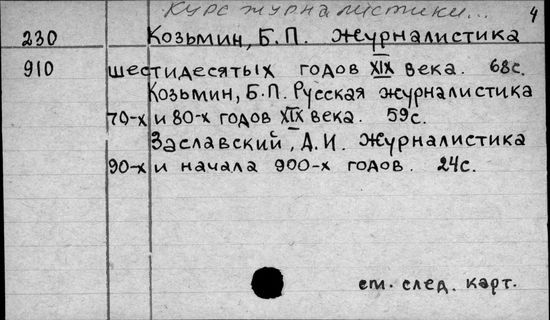 Курс журналистики... 4
230 Козьмин, Б.П. Журналистика
910 шестидесятых годов XIX века. 68с.
Козьмин, Б.П. Русская журналистика
70-х и 80-х годов XIX века. 59с.
Заславский, Д.И. Журналистика
90-х и начала 900-х годов. 24с.
см. след. карт.